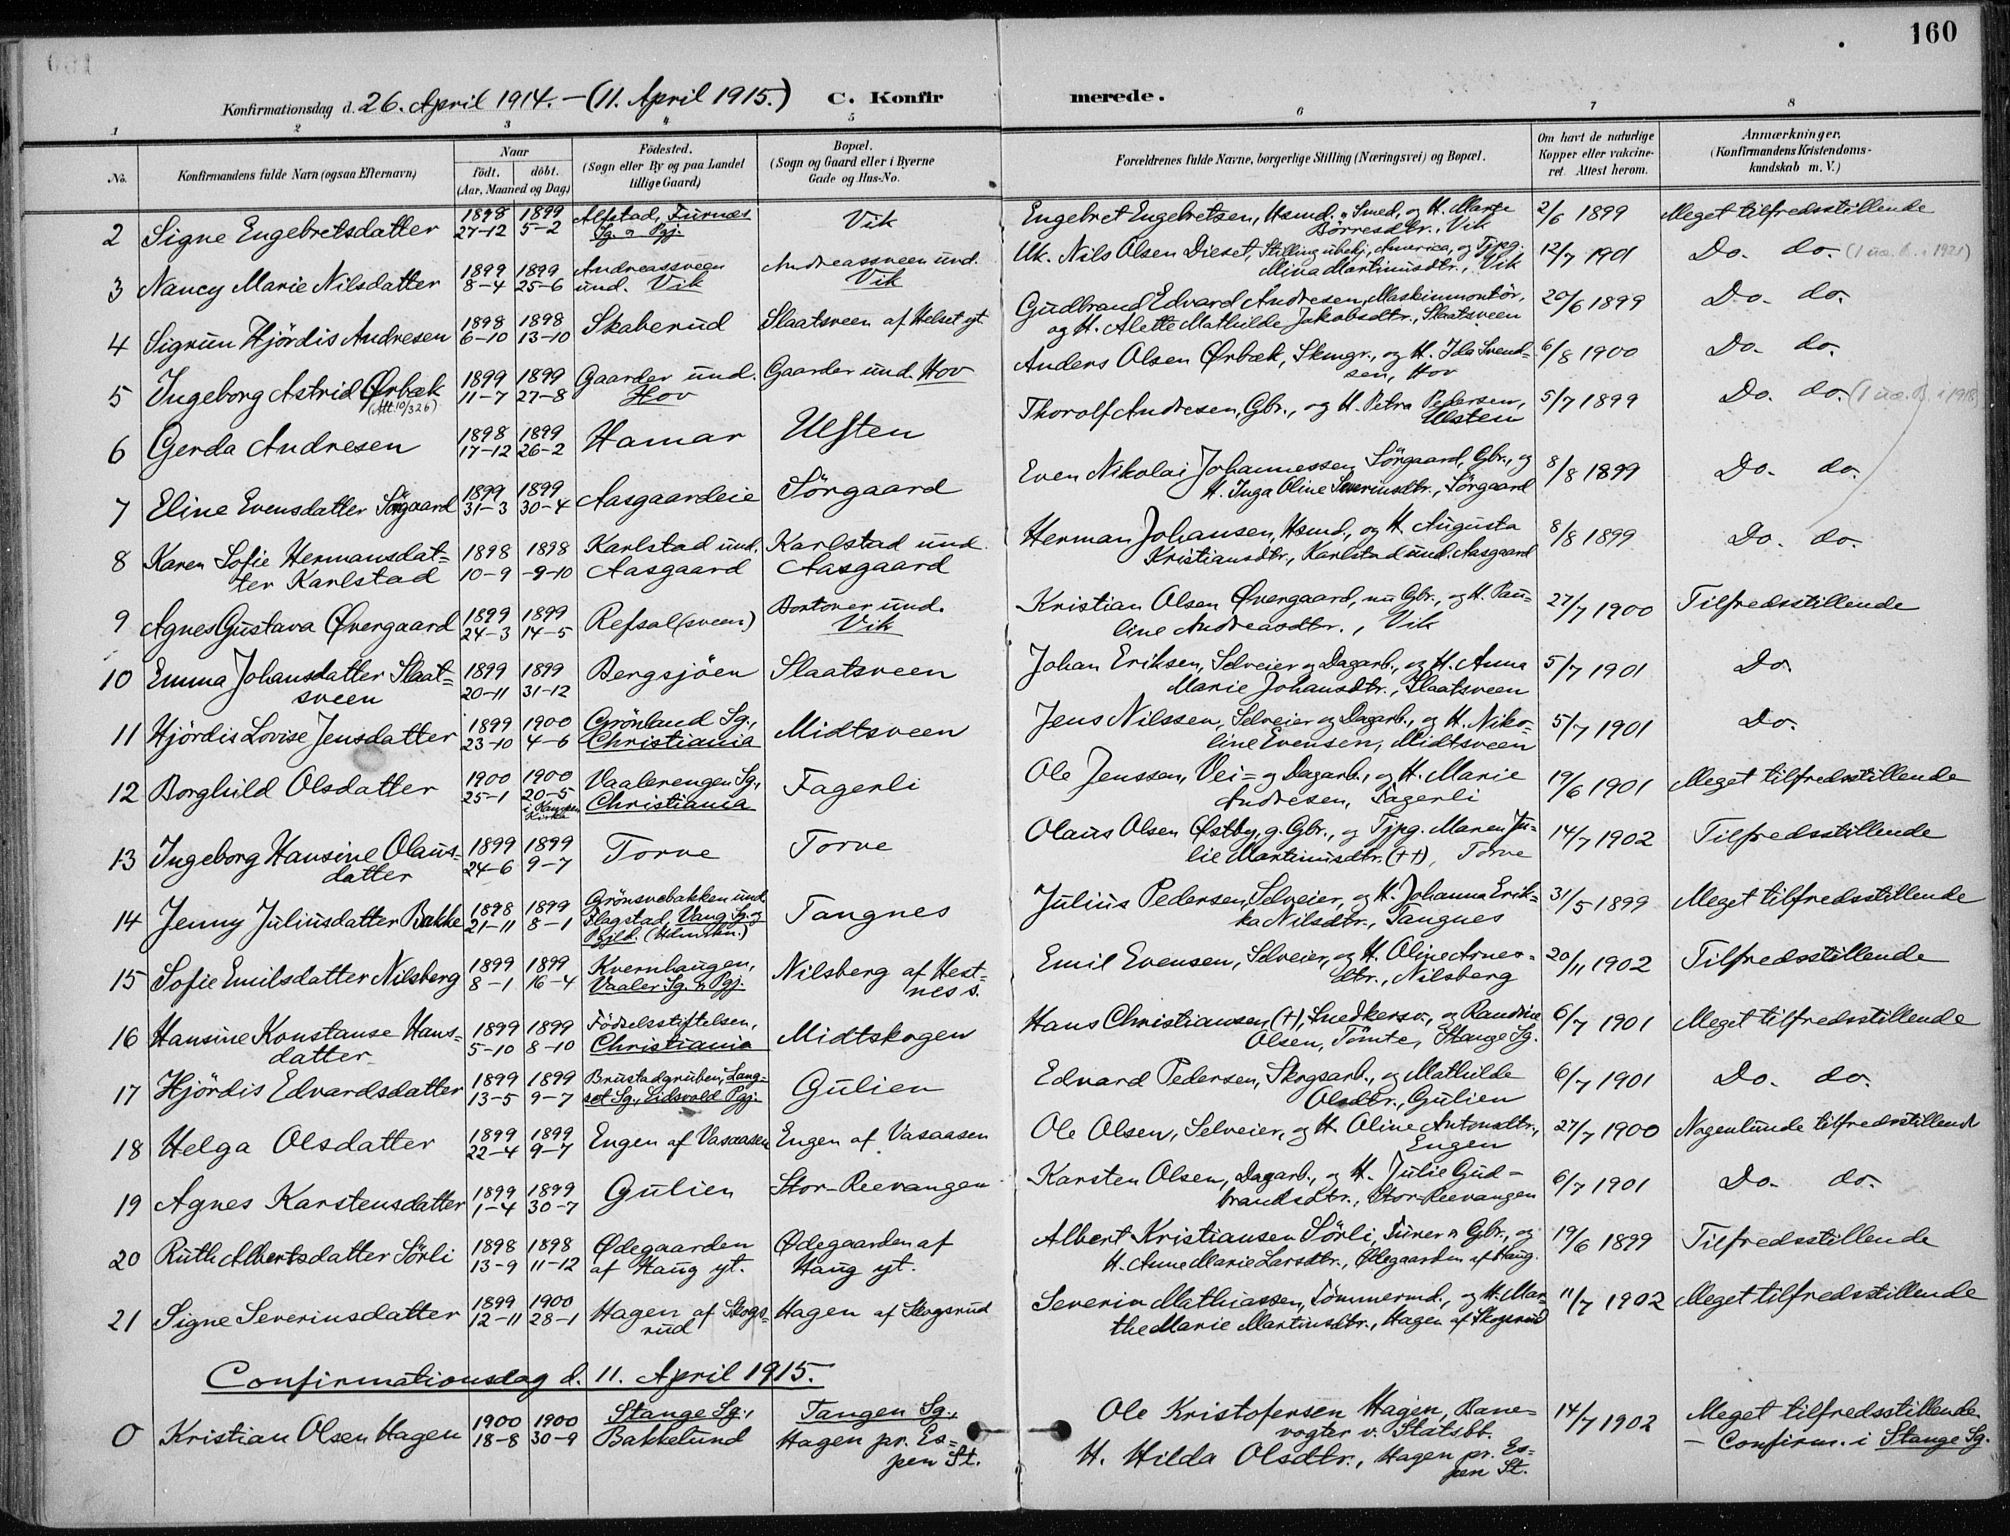 160
Konfirmationsdag d. 26. April 1914. – (11. April 1915.) C. Konfirmerede.
1 2 3 4 5 6 7 8
No. Konfirmandens fulde Navn (ogsaa Efternavn) Naar født. døbt. (Aar, Maaned og Dag) Fødested. (Sogn eller By og paa Landet tillige Gaard) Bopæl. (Sogn og Gaard eller i Byerne Gade og Hus-No. Forældrenes fulde Navne, borgerlige Stilling (Næringsvei) og Bopæl. Om havt de naturlige Kopper eller vakcineret. Attest herom. Anmærkninger. (Konfirmandens Kristendomskundskab m. V.)
2 Signe Engebretsdatter 1898 27-12 1899 5-2 Alfstad, Furnæs Sg. og Pgj. Vik Engebret Engebretsen, Hsmd. og Smed, og H. Marte Børresdtr., Vik 2/6 1899 Meget tilfredsstillende
3 Nancy Marie Nilsdatter 1899 8-4 1899 25-6 Andreassveen und. Vik Andreassveen und. Vik Uk. Nils Olsen Dieset, Stilling ubekj., America, og Tjpg. Mina Martinusdtr., Vik 12/7 1901 Do. do. (1 ua. A. i 1921)
4 Sigrun Hjördis Andresen 1898 6-10 1898 13-10 Skaberud Slaatsveen af Helset yt Gudbrand Edvard Andresen, Maskinmontör, og H. Alette Mathilde Jakobsdtr., Slaatsveen 20/6 1899 Do. do.
5 Ingeborg Astrid Ørbæk (Att. 10/3 26) 1899 11-7 1899 27-8 Gaarder und. Hov Gaarder und. Hov Anders Olsen Ørbæk, Skmgr., og H. Ida Svendsen, Hov 6/8 1900 Do. do.
6 Gerda Andresen 1898 17-12 1899 26-2 Hamar Ulsten Thorolf Andresen, Gbr., og H. Petra Pedersen, Ulsten 5/7 1899 Do. do. (1 ua. B. i 1918)
7 Eline Evensdatter Sörgaard 1899 31-3 1899 30-4 Aasgaardeie Sörgaard Even Nikolai Johannessen Sörgaard, Gbr., og H. Inga Oline Severinsdtr., Sörgaard 8/8 1899 Do. do.
8 Karen Sofie Hermansdatter Karlstad 1898 10-9 1898 -9-10 Karlstad und. Aasgaard Karlstad und. Aasgaard Herman Johansen, Hsmd., og H. Augusta Kristiansdtr., Karlstad und. Aasgaard 8/8 1899 Do. do.
9 Agnes Gustava Øvergaard 1899 24-3 1899 14-5 Refsal (sveen) Bortover und. Vik Kristian Olsen Øvergaard, nu Gbr., og H. Pauline Andreasdtr., Vik 27/7 1900 Tilfredsstillende
10 Emma Johansdatter Slaatsveen 1899 20-11 1899 31-12 Bergsjöen Slaatsveen Johan Eriksen, Selveier og Dagarb., og H. Anna Marie Johansdtr., Slaatsveen 5/7 1901 Do.
11 Hjördis Lovise Jensdatter 1899 23-10 1900 4-6 Grönland Sg., Christiania Midtsveen Jens Nilssen, Selveier og Dagarb., og H. Nikoline Evensen, Midtsveen 5/7 1901 Do.
12 Borghild Olsdatter 1900 25-1 1900 20-5 i Kampen Kirke Vaalerengen Sg., Christiania Fagerli Ole Jenssen, Vei= og Dagarb., og H. Marie Andresen, Fagerli 19/6 1901 Meget tilfredsstillende
13 Ingeborg Hansine Olausdatter 1899 24-6 1899 9-7 Torve Torve Olaus Olsen Østby, g. Gbr., og Tjpg. Maren Julie Martinusdtr. (++), Torve 14/7 1902 Tilfredsstillende
14 Jenny Juliusdatter Bakke 1898 21-11 1899 8-1 Grönsvebakken und Flagstad, Vang Sg. og Pgjld. (Hdmrkn.) Tangnes Julius Pedersen, Selveier, og H. Johanna Erikka Nilsdtr., Tangnes 31/5 1899 Meget tilfredsstillende
15 Sofie Emilsdatter Nilsberg 1899 8-1 1899 16-4 Kvernhaugen, Vaaler Sg. og Pgj. Nilsberg af Hestnes s. Emil Evensen, Selveier, og H. Oline Arnesdtr., Nilsberg 20/11 1902 Tilfredsstillende
16 Hansine Konstanse Hansdatter 1899 5-10 1899 8-10 Födselsstiftelsen, Christiania Midtskogen Hans Christiansen, (+), Snedkersv., og Randine Olsen, Tömte, Stange Sg. 6/7 1901 Meget tilfredsstillende
17 Hjördis Edvardsdatter 1899 13-5 1899 9-7 Brustadgruben, Langset Sg., Eidsvold Pgj. Gulien Edvard Pedersen, Skogsarb., og Mathilde Olsdtr., Gulien 6/7 1901 Do. do.
18 Helga Olsdatter 1899 22-4 1899 9-7 Engen af Vasaasen Engen af Vasaasen Ole Olsen, Selveier, og H. Oline Antonsdtr., Engen 27/7 1900 Nogenlunde tilfredsstillende
19 Agnes Karstensdatter 1899 1-4 1899 30-7 Gulien Stor-Reevangen Karsten Olsen, Dagarb., og H. Julie Gudbrandsdtr., Stor-Reevangen 6/7 1901 Do. do.
20 Ruth Albertsdatter Sörli 1898 13-9 1898 11-12 Ødegaarden af Haug yt. Ødegaarden af Haug yt. Albert Kristiansen Sörli, Turer og Gbr., og H. Anne Marie Larsdtr., Ødegaarden af Haug. 19/6 1899 Tilfredsstillende
21 Signe Severinsdatter 1899 12-11 1900 28-1 Hagen af Skogsrud Hagen af Skogsrud Severin Mathiassen, Tömmermd., og H. Marthe Marie Martinsdtr., Hagen af Skogsrud 11/7 1902 Meget tilfredsstillende
Confirmationsdag d. 11. April 1915.
0 Kristian Olsen Hagen 1900 18-8 1900 30-9 Stange Sg., Bakkelund Tangen Sg., Hagen pr. Espen St. Ole Kristofersen Hagen, Banevogter v. Statsbb. H. Hilda Olsdtr., Hagen pr. Espen St. 14/7 1902 Meget tilfredsstillende – Confirm. i Stange Sg.